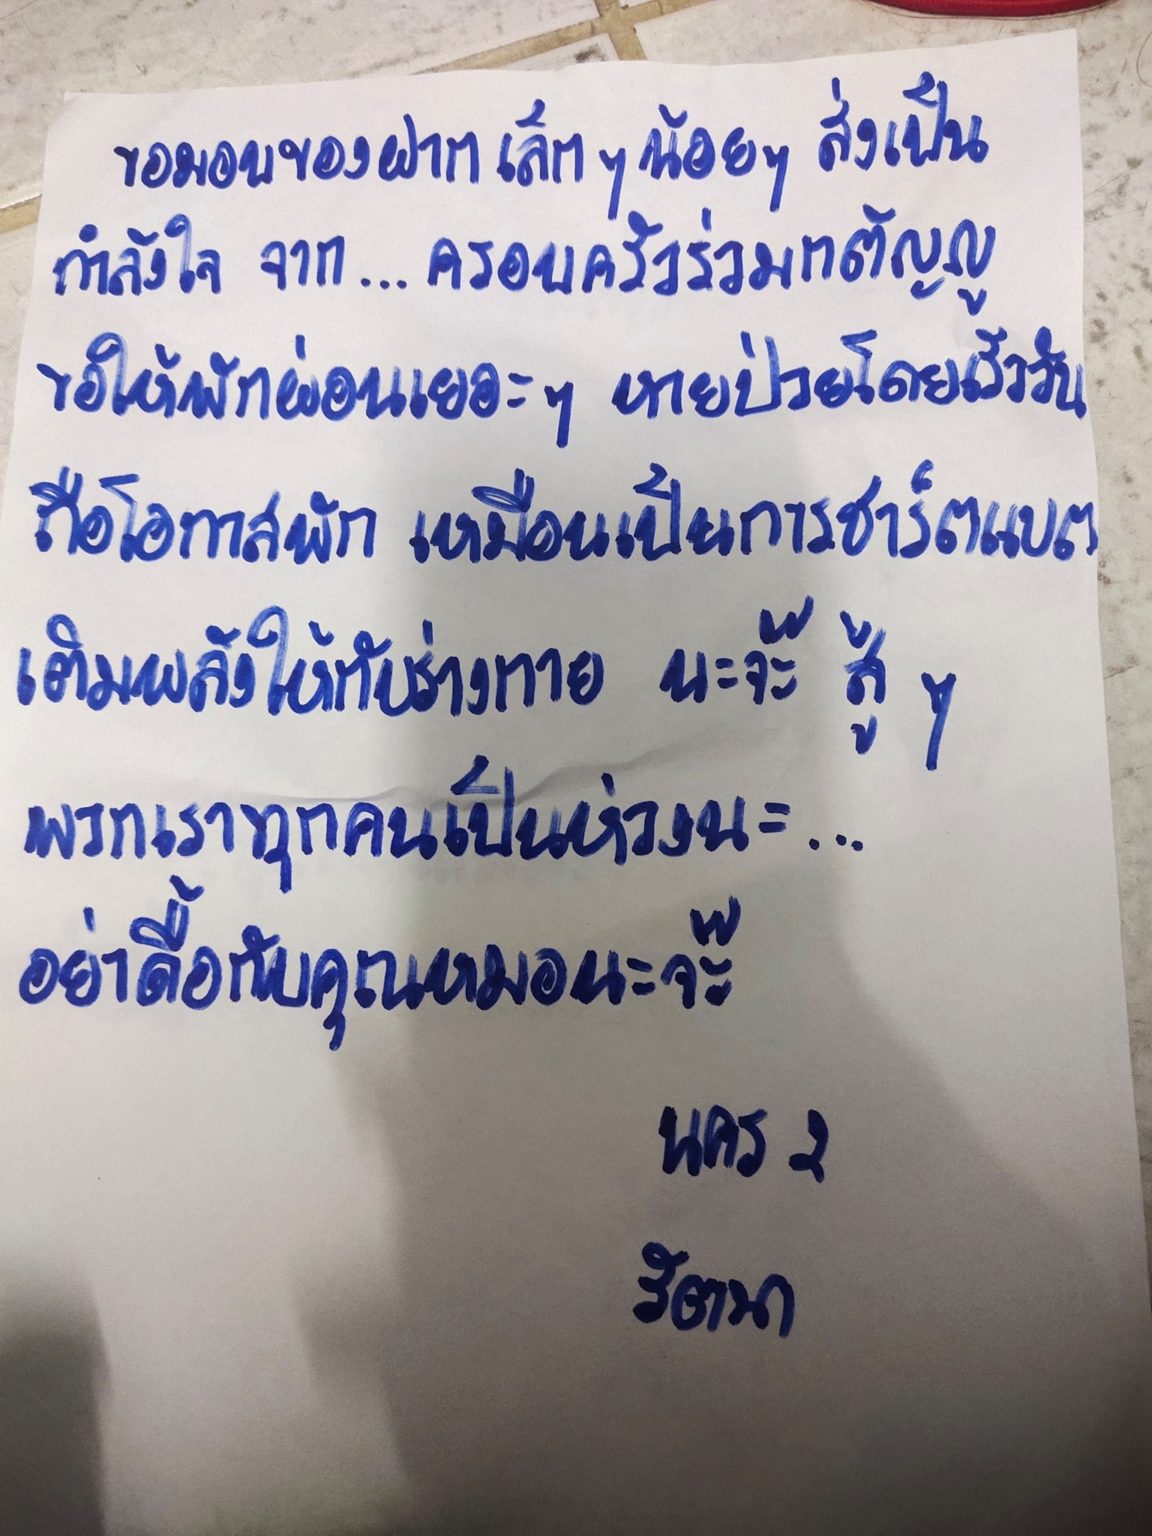 ขอมอบของฝากเล็กๆน้อยๆ ส่งเป็น
กำลังใจ จาก...ครอบครัวร่วมกตัญญู
ขอให้พักผ่อนเยอะๆ หายป่วยโดยเร็ววัน
ถือโอกาสพัก เหมือนเป็นการชาร์ตแบต
เติมพลังให้กับร่างกาย นะจ๊ะ สู้ๆ
พวกเราทุกคนเป็นห่วงนะ...
อย่าดื้อกับคุณหมอนะจ๊ะ
นคร 2
รัตนา